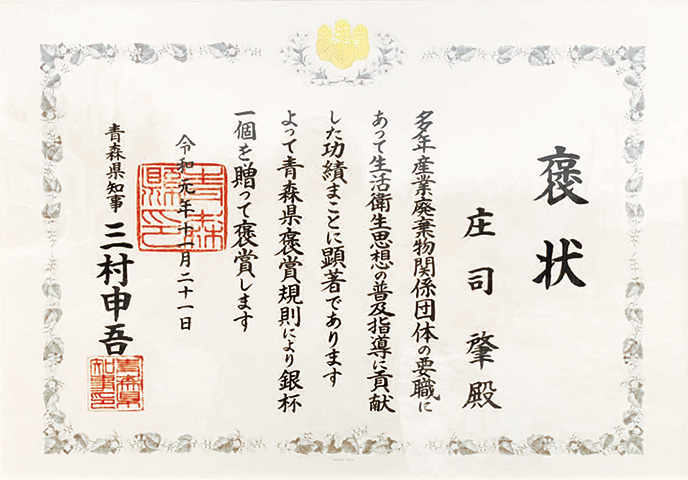 褒状
庄司肇殿
多年産業廃棄物関係団体の要職に
あって生活衛生思想の普及指導に貢献
した功績まことに顕著であります
よって青森県褒賞規則により銀杯
一個を贈って褒賞します
令和元年十一月二十一日
青森県知事 三村申吾
青森縣印
青森県知事印